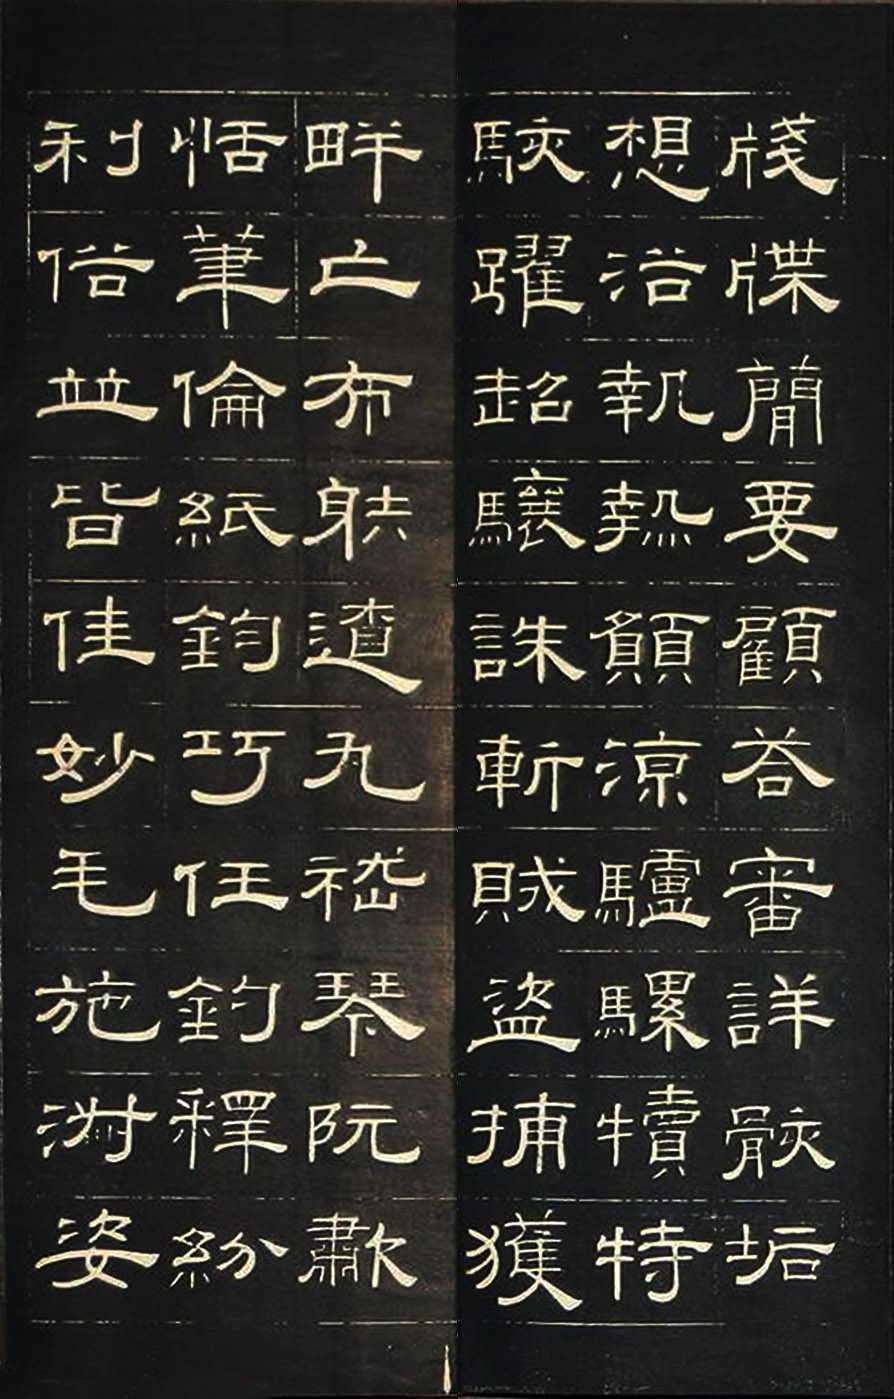 牋牒簡要顧荅審詳骸垢
想浴執熱願涼驢騾犢特
駭躍超驤誅斬賊盜捕獲
畔亡布射遼丸嵇琴阮歗
恬筆倫紙鈞巧任釣釋紛
利俗並皆佳妙毛施淑姿